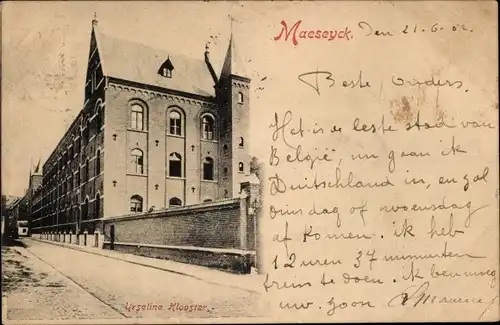 Maeseyck.
Den 21-6-02
Beste ouders.
Het is de leste stad van
België, nu gaan ik
Duitschland in, en zal
dinsdag of woensdag
af komen. ik heb
12 uren 37 minuten
trein te doen. ik ben nog
uw. zoon
Urseline Klooster